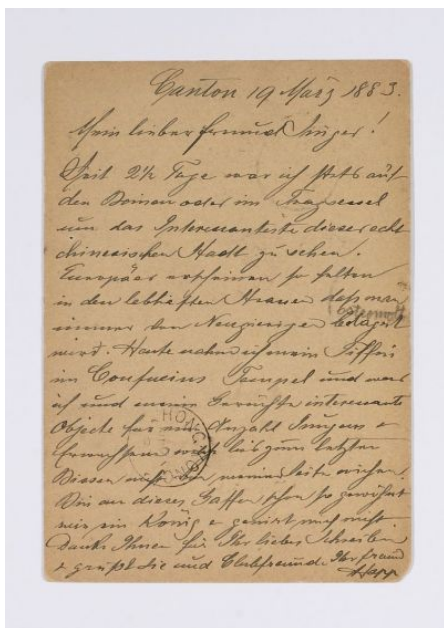 Canton 19 März 1883.
Mein lieber Freund !
Seit 2½ Tage war ich stets auf
den Beinen oder im Tragsessel
um das Interessanteste dieser echt
chinesischen Stadt zu sehen.
Europäer erscheinen so selten
in den lebhaften Strassen daß man
immer von Neugierigen belagert
wird. Heute nahm ich mein Tiffin
im Confucius Tempel und war
ich und meine interessante
Objecte für eine Anzahl Jungens &
Erwachsene die bis zum letzten
Bissen nicht von meiner Seite wichen.
Bin an dieses Gaffen schon so gewöhnt
wie ein König & genirt mich nicht.
Danke Ihnen für Ihr liebes Schreiben
& grüße Sie und Clubfreunde. Ihr Freund
HONG KONG